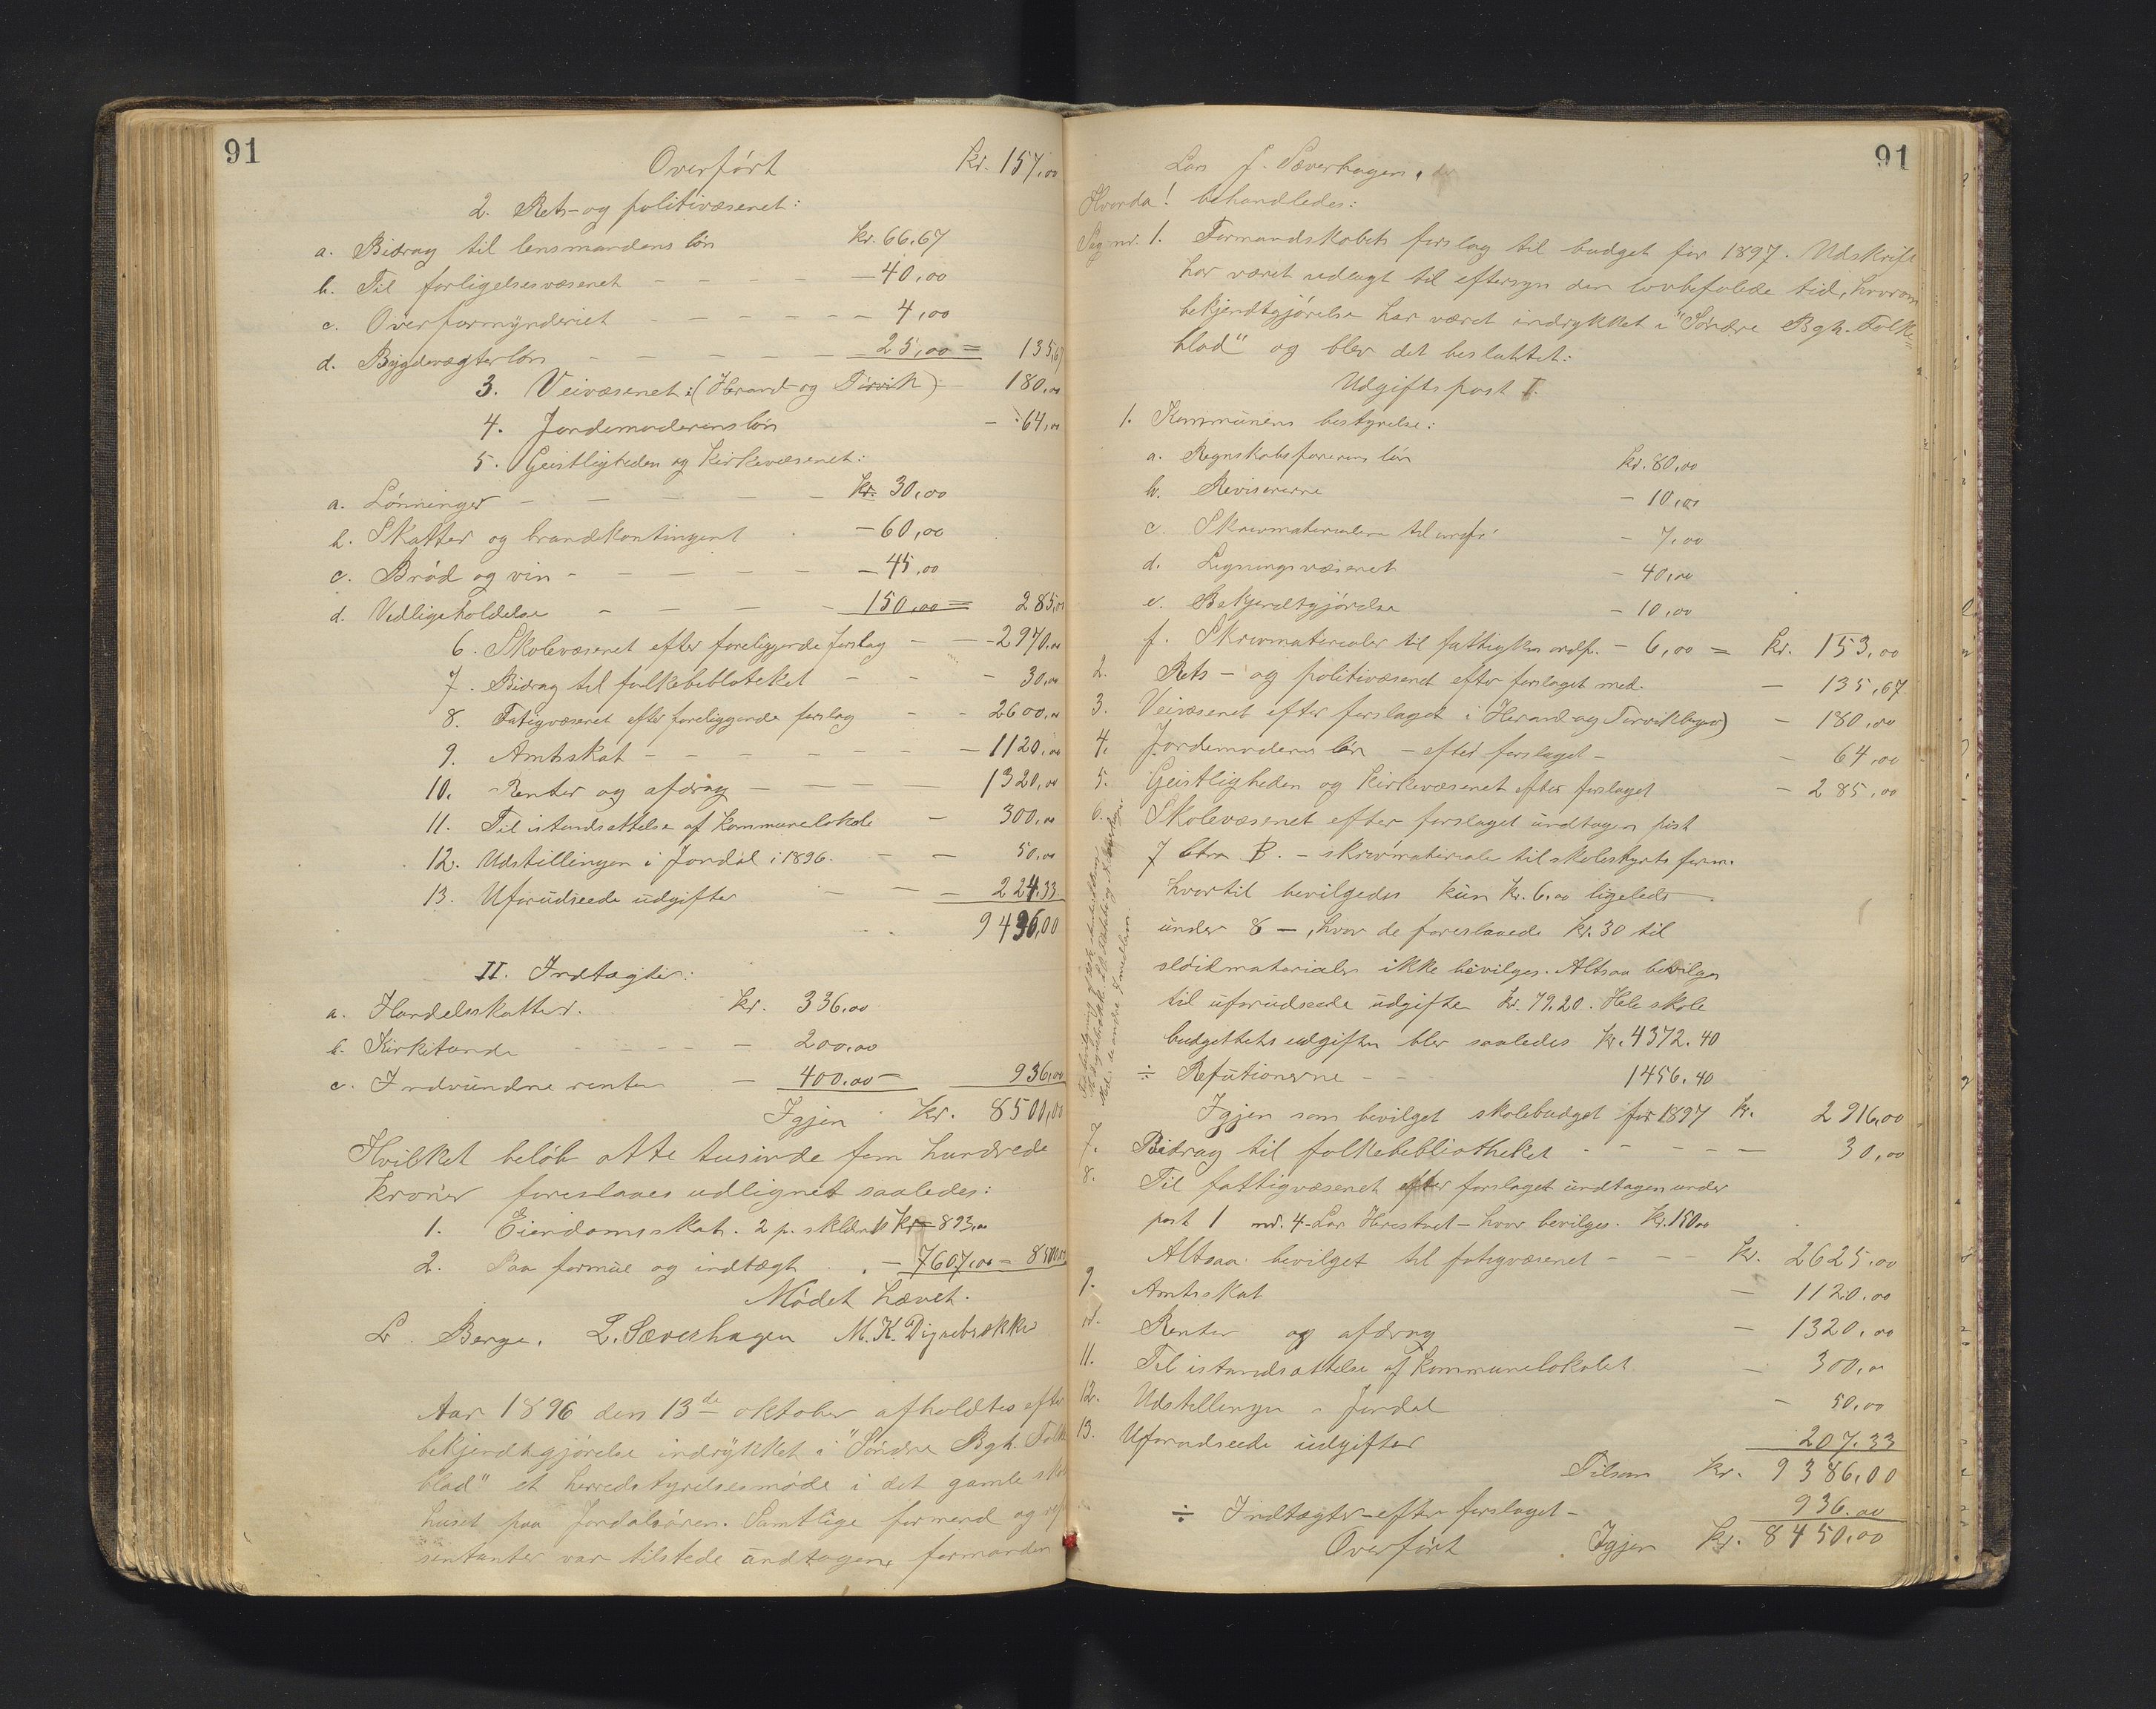 91
Overført Kr. 157,00
2. Rets- og politivæsenet:
a. Bidrag til lensmandens løn kr. 66,67
b. Til forligelsesvæsenet - - - - - 40,00
c. Overformynderiet - - - - - - 4,00
d. Bygdevægterløn - - - - - - 25,00 = 135,67
3. Veivæsenet: (Herand og Tørvik) - 180,00
4. Jordemoderens løn - 64,00
5. Geistligheden og kirkevæsenet:
a. Lønninger - - - - - - kr. 30,00
b. Skatter og brandkontingent - 60,00
c. Brød og vin - - - - - - 45,00
d. Vedligeholdelse - - - - 150,00 = 285,00
6. Skolevæsenet efter foreliggende forslag - - 2970,00
7. Bidrag til folkebiblioteket - - - 30,00
8. Fatigvæsenet efter foreliggende forslag - - 2600,00
9. Amtskat - - - - - - - 1120,00
10. Renter og afdrag - - - - 1320,00
11. Til istandsættelse af kommunelokale - 300,00
12. Udstillingen i Jondal i 1896. - - 50,00
13. Uforudseede udgifter - - - 224.33
9436,00
II. Indtægter:
a. Handelsskatter. Kr. 336,00
b. Kirketiende - - - - - 200,00
c. Indvundne renter - 400.00 - 936,00
Igjen Kr. 8500,00
Hvilket beløb otte tusinde fem hundrede
kroner foreslaaes udlignet saaledes:
1. Eiendomsskat. 2 p. skldmk kr 893,00
2. Paa formue og indtægt - 7607,00 = 8500,00
Mødet hævet.
L. Berge. L. Sæverhagen M. K. Digrebrække
Aar 1896 den 13de oktober afholdtes efter
bekjendtgjørelse indrykket i "Søndre Bgh. Folke
blad" et herredstyrelsesmøde i det gamle skole
huset paa Jondalsøren. Samtlige formend og repr
sentanter var tilstede undtagen formanden
91
Lars J. Sæverhagen.
Hvorda! behandledes:
Sag nr. 1. Formandskabets forslag til budget for 1897. Udskrift
har været udlagt til eftersyn den lovbefalede tid, hvorom
bekjendtgjørelse har været indrykket i "Søndre Bgh. Folke
blad" og blev det besluttet:
Udgiftspost I.
1. Kommunens bestyrelse:
a. Regnskabsførerens løn kr. 80,00
b. Revisorerne - 10,00
c. Skrivmaterialer til ordf. - 7,00
d. Ligningsvæsenet - 40,00
e. Bekjendtgjørelse - 10,00
f. Skrivmaterialer til fattigkm ordf. - 6,00 = Kr. 153,00
2. Rets- og politivæsenet efter forslaget med. - 135,67
3. Veivæsenet efter forslaget i Herand og Tørvikbygd) - 180,00
4. Jordemoderens løn - efter forslaget - - 64,00
5. Geistligheden og kirkevæsenet efter forslaget - 285,00
6. Skolevæsenet efter forslaget undtagen post
7 litra B. - skrivmaterialer til skolestyrets form.
hvortil bevilgedes kun kr. 6,00 ligeleds
under 8 -, hvor de foreslaaede kr. 30 til
sløidmaterialer ikke bevilges. Altsaa bevilges
til uforudseede udgifter kr. 79.20. Hele skole
budgettets udgifter blev saaledes Kr. 4372.40
÷ Refutionerne - - 1456.40
Igjen som bevilget skolebudget for 1897 kr. 2916,00
7. Bidrag til folkebibliotheket - - - - - 30,00
8. Til fattigvæsenet efter forslaget undtagen under
post 1 nr. 4 - Lar Herestvet - hvor bevilges. Kr. 150,00
Altsaa bevilget til fatigvæsenet - - - Kr. 2625,00
9. Amtsskat - 1120,00
10. Renter og afdrag - 1320,00
11. Til istandsættelse af kommunelokalet - 300,00
12. Udstillingen i Jondal - 50,00
13. Uforudseede udgifter 207.33
Tilsam Kr. 9386,00
÷ Indtægter - efter forslaget - 936.00
Overført Igjen Kr. 8450,00